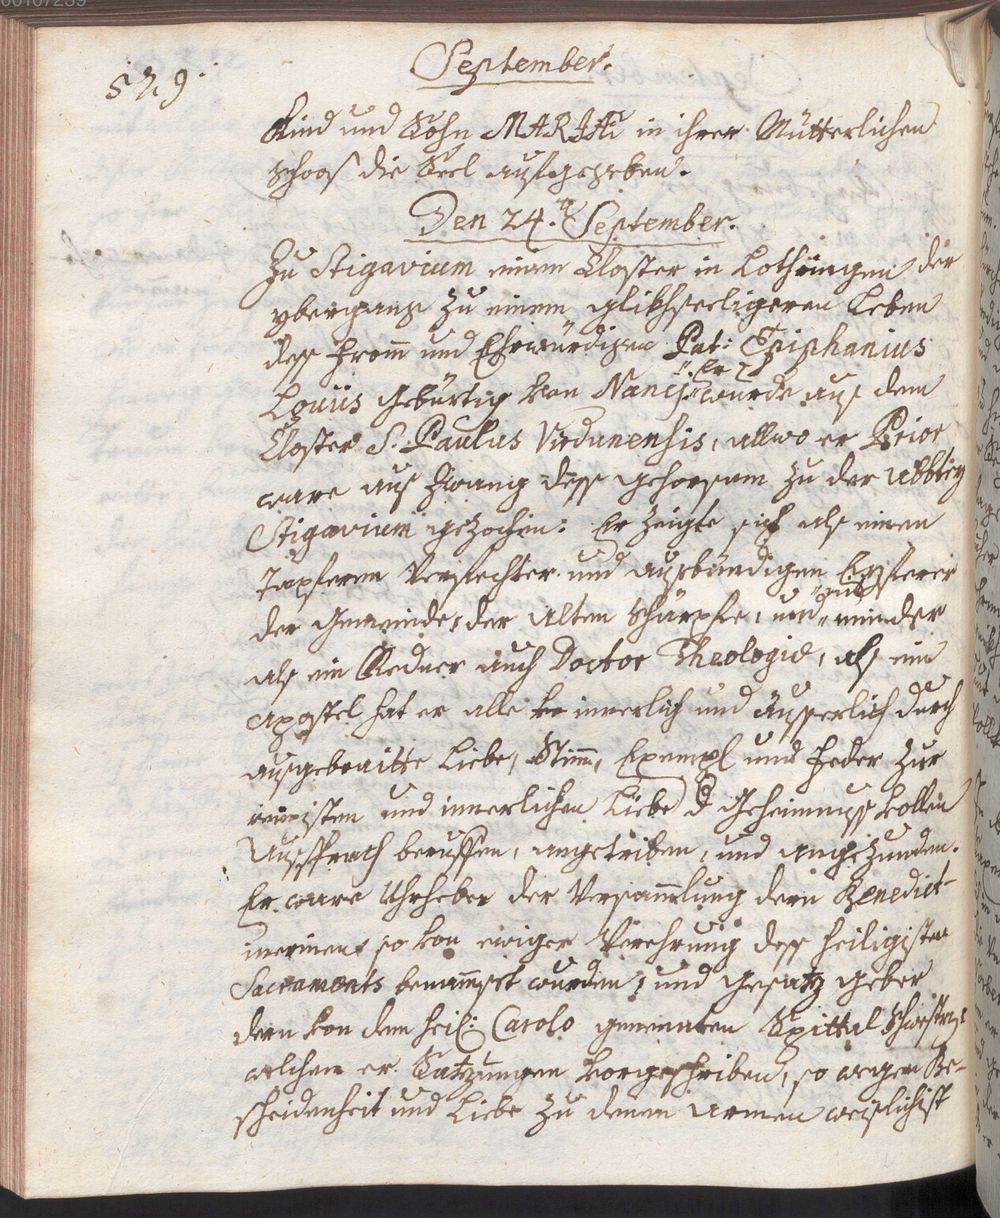 00107239
September.
579.
Kind und Sohn MARIAE in ihrer Mütterlichen
schoos die Seel aufgegeben.
Den 24.ten September.
Zu Stigavium einem Closter in Lothringen der
ybergang zu einem glikhseeligeren Leben
dess from̄ und Ehrwürdigen Pat: Epiphanius
Louiis gebürtig von Nancj. Er wurde aus dem
Closter S. Paulus Virdunensis, allwo er Prior
ware aus Zwang dess gehorsam zu der Abbtey
Stigavium gezochen. Er zeigte sich als einen
Tapferen Verfechter und ausbündigen Eyferer
der Gemeinde, der alten schärpfe, und nit minder
als ein Redner auch Doctor Theologiae, als ein
Apostel hat er alle innerlich und äusserlich durch
ausgebraitte Liebe, Stim̄, Exempl und Feder zur
reinisten und innerlichen Liebe d Geheimnuss vollen
Aussprach beruffen, angetriben, und angezunden.
Er ware Uhrheber der Versam̄lung deren Benedict-
inerinen so von ewiger Verehrung dess heiligisten
Sacraments benam̄set wurden, und gesatz geber
deren von dem heil: Carolo genenten Spittal Schwestern,
welchen er Satzungen vorgeschriben, so wegen Be-
scheidenheit und Liebe zu denen armen weislichist